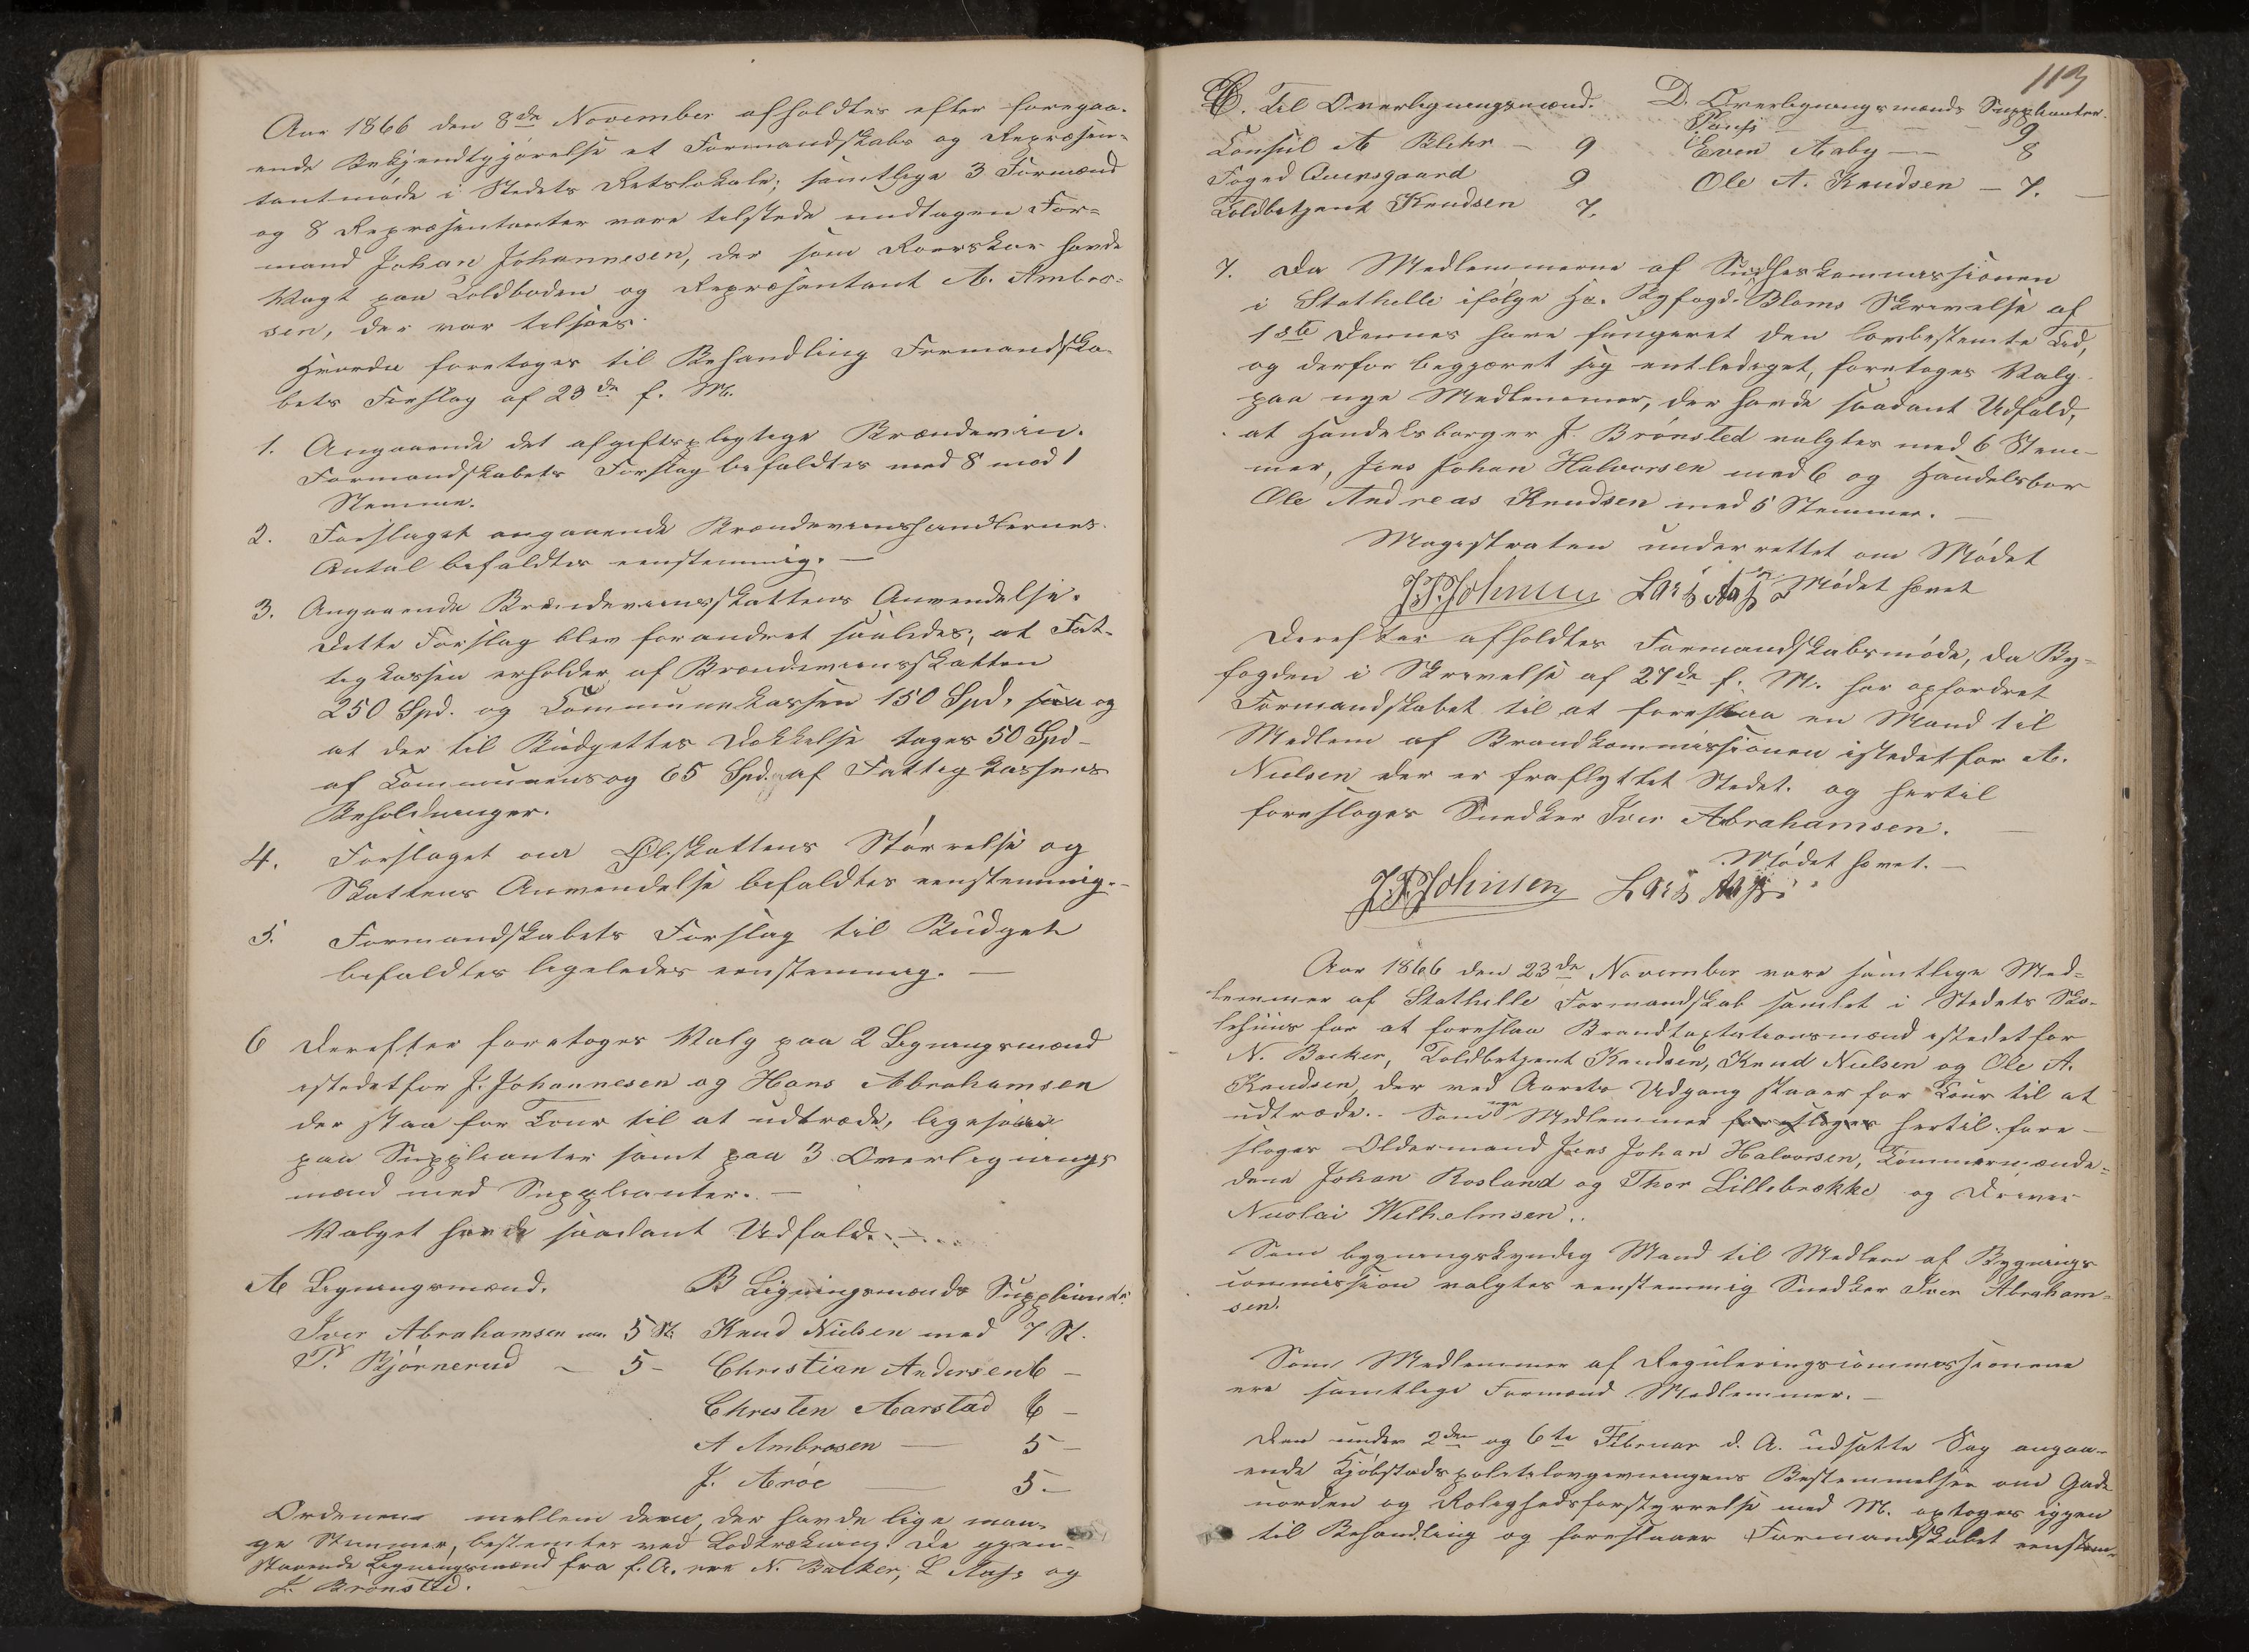 Aar 1866 den 8de November afholdtes efter foregaa-
ende Bekjendtgjørelse et Formandskabs og Repræsen-
tantmøde i Stedets Retslokale; samtlige 3 Formænd
og 8 Repræsentanter vare tilstede undtagen For-
mand Johan Johannesen, der som Roerskar havde
Vagt paa Toldboden og Repræsentant A. Ambro-
sen, der var tilsøes.
Hvorda foretoges til Behandling Formandska-
bets Forslag af 23de f. M.
1. Angaaende det afgiftspligtige Brændeviin.
Formandskabets Forslag bifaldtes med 8 mod 1
Stemme.
2. Forslaget angaaende Brændeviinshandlernes
Antal bifaldtes eenstemmig. —
3. Angaaende Brændeviinsskattens Anvendelse.
Dette Forslag blev forandret saaledes, at Fat-
tigkassen erholder af Brændeviinsskatten
250 Spd. og Communekassen 150 Spd, og
at der til Budgettes Dækkelse tages 50 Spd
af Communens og 65 Spd. af Fattigkassens
Beholdninger.
4. Forslaget om Ølskattens Størrelse og
Skattens Anvendelse bifaldtes eenstemmig. —
5. Formandskabets Forslag til Budget
bifaldtes ligeledes eenstemmig. —
6 Derefter foretoges Valg paa 2 Ligningsmænd
istedetfor J. Johannesen og Hans Abrahamsen
der staa for Tour til at udtræde, ligesom
paa Suppleanter samt paa 3 Overlignings
mænd med Suppleanter. —
Valget havde saadant Udfald. —
A Ligningsmænd. B Ligningsmænds Suppleanter
Iver Abrahamsen 5 St. Knud Nielsen med 7 St.
P. Bjørnerud — 5 — Christian Andersen 6 —
Christen Aarstad 6 —
A Ambrosen — 5 —
J. Arøe — 5. —
Ordenen mellem dem, der havde lige man-
ge Stemmer, bestemtes ved Lodtrækning. De gjen-
staaende Ligningsmænd fra f. A. ere N. Backer, L Aass og
J. Brønsted. —
113
C. Til Overligningsmænd. D. Overligningsmænds Suppleanter.
Consul A Blehr — 9 9
Foged Qvensgaard 9 Even Aaby — 8
Toldbetjent Knudsen 7. Ole A. Knudsen — 7. —
7. Da Medlemmerne af Sundhedskommissionen
i Stathelle ifølge Hr. Byfogd Bloms Skrivelse af
1ste dennes have fungeret den lovbestemte Tid,
og derfor begjæret sig entlediget, foretoges Valg
paa nye Medlemmer, der havde saadant Udfald,
at Handelsborger J. Brønsted valgtes med 6 Stem-
mer, Jens Johan Halvorsen med 6 og Handelsbor
Ole Andreas Knudsen med 5 Stemmer. —
Magistraten underrettet om Mødet
Mødet hævet
Derefter afholdtes Formandskabsmøde, da By-
fogden i Skrivelse af 27de f. M. har opfordret
Formandskabet til at foreslaa en Mand til
Medlem af Brandkommissionen istedetfor A.
Nielsen der er fraflyttet Stedet. og hertil
foresloges Snedker Iver Abrahamsen. —
Mødet hævet. —
Aar 1866 den 23de November vare samtlige Med-
lemmer af Stathelle Formandskab samlet i Stedets Sko-
lehuus for at foreslaa Brandtaxtationsmænd istedetfor
N. Backer, Toldbetjent Knudsen, Knud Nielsen og Ole A.
Knudsen, der ved Aarets Udgang staaer for Tour til at
udtræde. Som nye Medlemmer foresloges hertil fore-
sloges Oldermand Jens Johan Halvorsen, Tømmermænde-
dene Johan Rosland og Thor Lillebrække og
Nicolai Wilhelmsen.
Som bygningskyndig Mand til Medlem af Bygnings
commission valgtes eenstemmig Snedker Iver Abraham-
sen.
Som Medlemmer af Reguleringscommissionen
ere samtlige Formænd Medlemmer. —
Den under 2den og 6te Februar d. A. udsatte Sag angaa-
ende Kjøbstadspolitilovgivningens Bestemmelser om Gade
uorden og Rolighedsforstyrrelse med M. optoges igjen
til Behandling og foreslaaer Formandskabet eenstem-